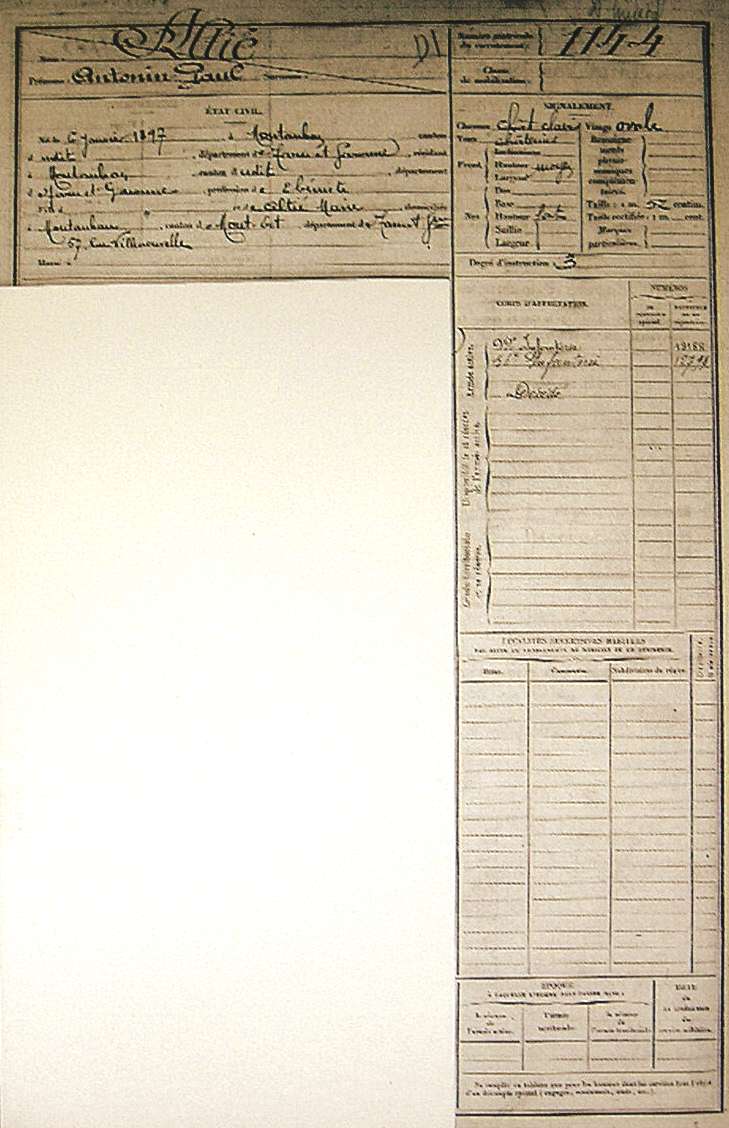 Altié
D1
Numéro matricule du recrutement : 1144
Nom :
Prénoms : Antonin Paul Surnoms :
Classe de mobilisation :
ÉTAT CIVIL.
Né le 6 Janvier 1897 à Montauban canton
d udit, département de Tarn et Garonne, résidant
à Montauban canton d udit, département
d Tarn et Garonne profession d' Ebéniste
fils d et de Altié Marie domiciliés
à Montauban, canton de Mont. Est département de Tarn et
57, Rue Villenouvelle
Marié à
SIGNALEMENT.
Cheveux chat clair Visage ovale
Yeux
Front Inclinaison
Hauteur moy
Largeur
Nez Dos
Base
Hauteur
Saillie
Largeur
Renseignements physionomiques complémentaires.
Taille : 1 m. 52 centim.
Taille rectifiée : 1 m. cent.
Marques particulières.
Degré d'instruction : 3
CORPS D'AFFECTATION.
NUMÉROS
Armée active.
Infanterie
Infanterie
Décédé
Disponibilité et réserve de l'armée active.
Armée territoriale et sa réserve.
LOCALITÉS SUCCESSIVES HABITÉES
PAR SUITE DE CHANGEMENTS DE DOMICILE OU DE RÉSIDENCE.
Dates.
Communes.
Subdivision de région.
ÉPOQUE
À LAQUELLE L'HOMME DOIT PASSER DANS :
la réserve de l'armée active.
l'armée territoriale.
la réserve de l'armée territoriale.
DATE de LA LIBÉRATION du service militaire.
Ne remplir ce tableau que pour les hommes dont les services font l'objet
d'un décompte spécial (engagés, omis, etc.).